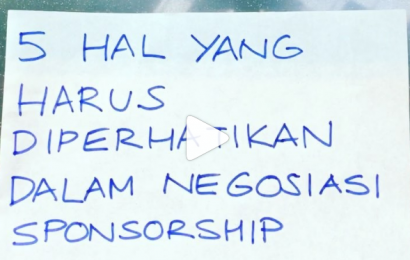 5 HAL YANG
HARUS
DIPERHATIKAN
DALAM NEGOSIASI
SPONSORSHIP